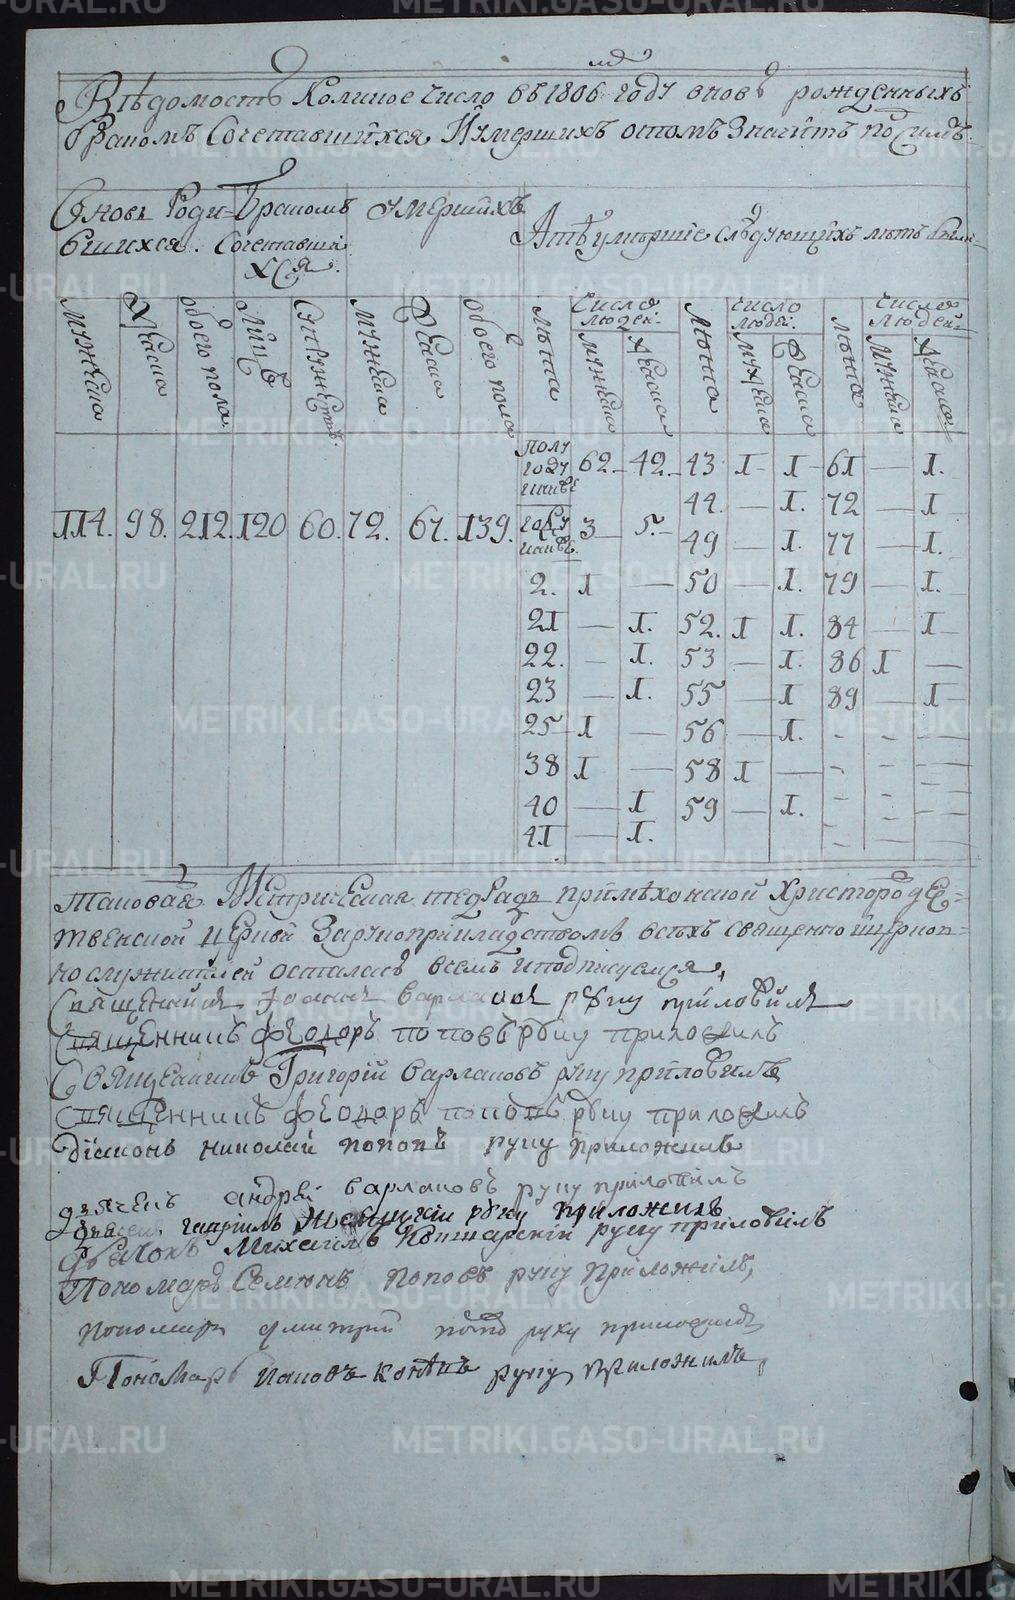 METRIKI.GASO-URAL.RU
Вѣдомость Коликое число въ 1806 году вновь рожденныхъ
бракомъ Сочетавшихся И умершихъ о томъ Значитъ по Симъ
вновь Роди-
вшихся.
бракомъ
Сочетавши
хся.
умершихъ
А тѣ умершіе слѣдующихъ лѣтъ были
мужеска
женска
обоего пола
лицъ
супружствъ
мужеска
женска
обоего пола
лѣта
число людей.
мужеска
женска
лѣта
число людей.
мужеска
женска
лѣта
число людей
мужеска
женска
114. 98. 212. 120 60. 72. 67. 139.
полу году 62. 42. 43 1 1 61 — 1.
44. — 1. 72 — 1
году 3 5. 49 — 1. 77 — 1.
2. 1 — 50 — 1. 79 — 1.
21 — 1. 52. 1 1. 84 — 1
22. — 1. 53 — 1. 86 1 —
23 — 1. 55 — 1 89 — 1
25 1 — 56 — 1. - - -
38 1 — 58 1 — - - -
40 — 1 59 — 1. - - -
41 — 1. - - -
таковая Метрическая тедрадь при Христорождест-
твенской церкви За рукоприкладствомъ всѣхъ священно и церков-
но служителей осталась в семъ и подписуемся,
Священникъ Іоаннъ варлаковъ руку приложилъ
Священникъ феодоръ поповъ руку приложилъ
Священникъ Григорій варлаковъ руку приложилъ
Священникъ феодоръ поповъ руку приложилъ
діаконъ николай поповъ руку приложилъ
дьячекъ андрей варлаковъ руку приложилъ
дьячекъ гавріилъ руку приложилъ
дьячокъ Михаилъ руку приложилъ
Пономарь Семіонъ поповъ руку приложилъ,
пономарь димитрій поповъ руку приложилъ
Пономарь руку приложилъ,